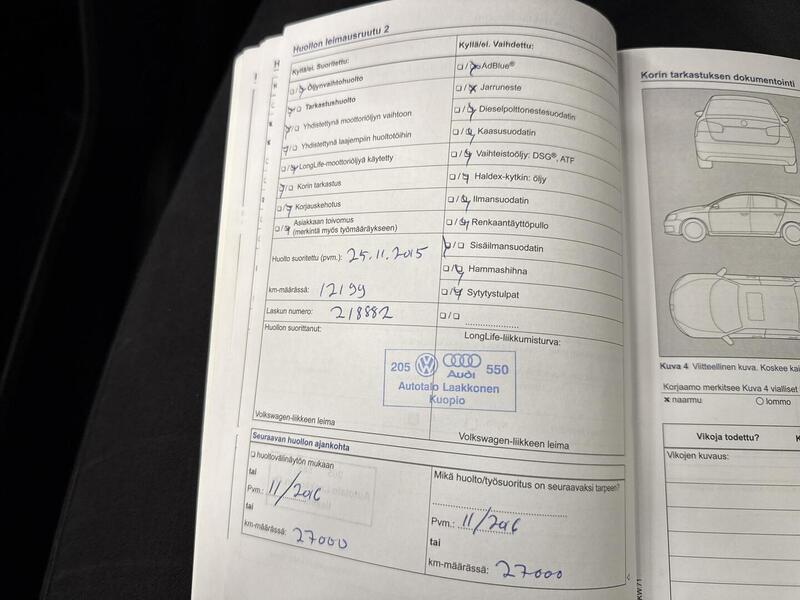 Huollon leimausruutu 2
Kyllä/ei. Suoritettu:
Öljynvaihtohuolto
Tarkastushuolto
Yhdistettynä moottoriöljyn vaihtoon
Yhdistettynä laajempiin huoltotöihin
LongLife-moottoriöljyä käytetty
Korin tarkastus
Korjauskehotus
Asiakkaan toivomus
(merkintä myös työmääräykseen)
Huolto suoritettu (pvm.): 25.11.2015
km-määrässä: 12199
Laskun numero: 218882
Huollon suorittanut:
Volkswagen-liikkeen leima
Kyllä/ei. Vaihdettu:
AdBlue®
Jarruneste
Dieselpolttonestesuodatin
Kaasusuodatin
Vaihteistoöljy: DSG®, ATF
Haldex-kytkin: öljy
Ilmansuodatin
Renkaantäyttöpullo
Sisäilmansuodatin
Hammashihna
Sytytystulpat
LongLife-liikkumisturva:
205 Audi 550
Autotalo Laakkonen
Kuopio
Volkswagen-liikkeen leima
Seuraavan huollon ajankohta
huoltovälinäytön mukaan
tai
Pvm.: 11/2016
tai
km-määrässä: 27000
Mikä huolto/työsuoritus on seuraavaksi tarpeen?
Pvm.: 11/2016
tai
km-määrässä: 27000
Korin tarkastuksen dokumentointi
Kuva 4 Viitteellinen kuva. Koskee
Korjaamo merkitsee Kuva 4 vialliset
naarmu
lommo
Vikoja todettu?
Vikojen kuvaus: